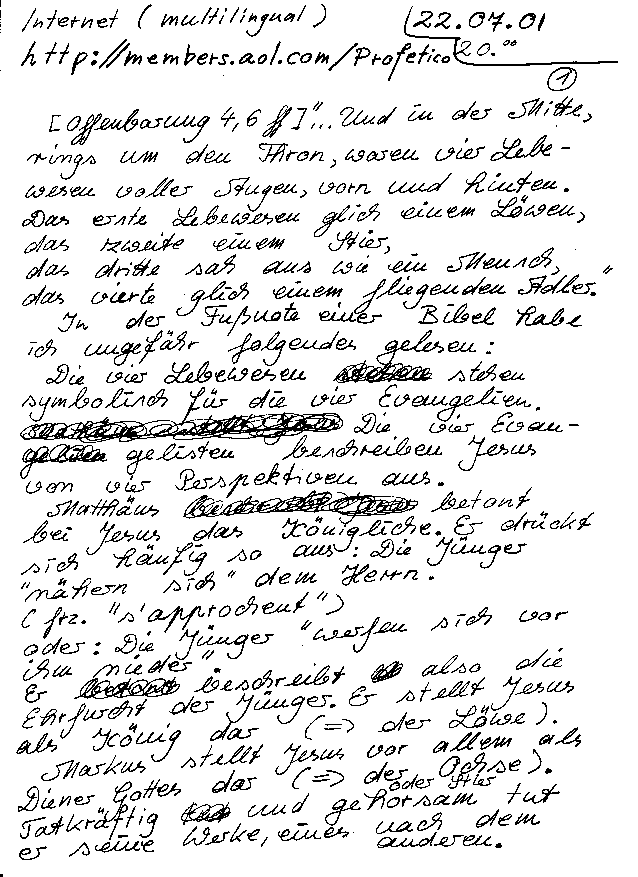 Internet (multilingual)
22.07.01
http://members.aol.com/Profetico
20.00
1
[Offenbarung 4,6 ff] "... Und in der Mitte,
rings um den Thron, waren vier Lebe-
wesen voller Augen, vorn und hinten.
Das erste Lebewesen glich einem Löwen,
das zweite einem Stier,
das dritte sah aus wie ein Mensch,
das vierte glich einem fliegenden Adler."
In der Fußnote einer Bibel habe
ich ungefähr folgendes gelesen:
Die vier Lebewesen stehen
symbolisch für die vier Evangelien.
Die vier Evan-
gelisten beschreiben Jesus
von vier Perspektiven aus.
Matthäus betont
bei Jesus das Königliche. Er drückt
sich häufig so aus: Die Jünger
"nähern sich" dem Herrn.
(frz. "s'approchent")
oder: Die Jünger "werfen sich vor
ihm nieder"
Er beschreibt also die
Ehrfurcht der Jünger. Er stellt Jesus
als König dar (=> der Löwe).
Markus stellt Jesus vor allem als
Diener Gottes dar (=> der Ochse).
oder Stier
Tatkräftig und gehorsam tut
er seine Werke, eines nach dem
anderen.